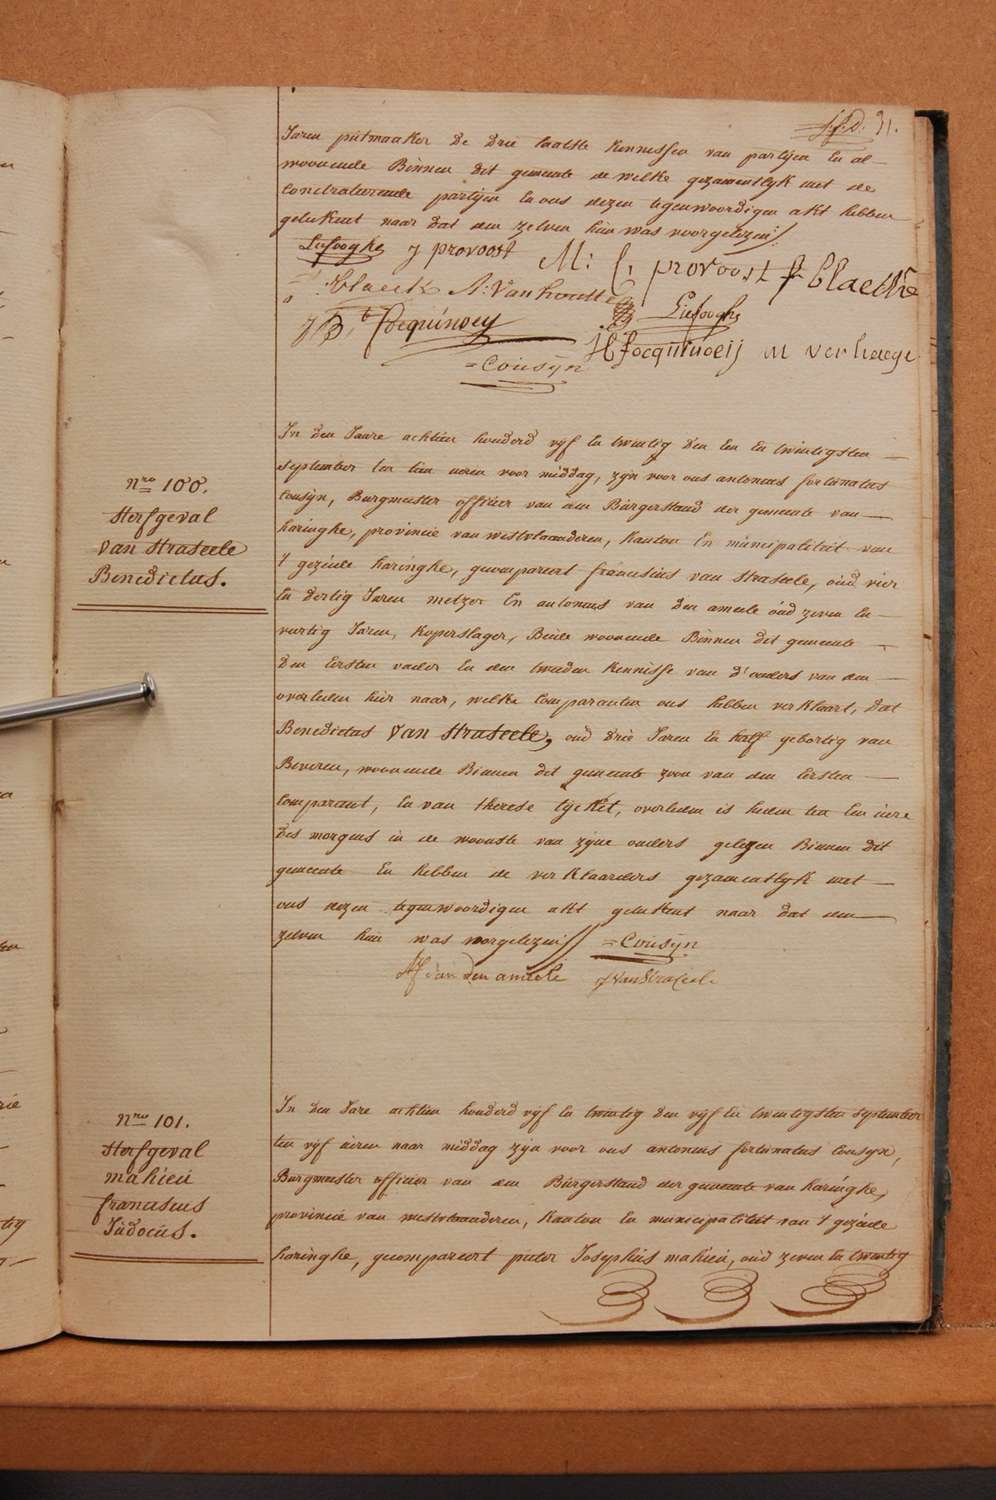 31.
Jaren putmaaker de drie laatste kennissen van partijen en al-
woonende Binnen dit gemeente de welke gezamentlyk met de
Contracterende partijen en ons dezen tegenwoordigen akt hebben
getekent naar dat den zelven hun was voorgelezen
Liefooghe j provoost M: C, provoost f Claeche
A: Vanhoutte Liefooghe
Jocquinoey H Jocquinoeij m verhaege
=Cousÿn
nro 100.
Sterfgeval
Van Straseele
Benedictus.
In den Jaare achtien honderd vijf en twintig den een en twintigsten
september ten tien uuren voor middag, zijn voor ons antonius fortunatus
Cousijn, Burgmeester officier van den Burgerstand der gemeente van
haringhe, provincie van westvlaanderen, kanton En municipaliteit van
't gezeide haringhe, gecompareert franciscus van Straseele, oud vier
En dertig Jaren metzer En antonius van den ameele oud zeven en
veertig Jaren, koperslager, Beide woonende Binnen dit gemeente
den Eersten vader En den tweeden kennisse van d'ouders van den
overleden hier naar, welke Comparanten ons hebben verklaart, dat
Benedictus Van Straseele, oud drie Jaren En half gebortig van
Beveren, woonende Binnen dit gemeente zoon van den Eersten
Comparant, En van therese, overleden is heden ten een uere
des morgens in de woonste van zijne ouders gelegen Binnen dit
gemeente En hebben de verklaarders gezamentlyk met
ons dezen tegenwoordigen akt getekent naar dat den
zelven hun was vorgelezen =Cousÿn
AF van den ameele f vanStraseele
Nro 101.
Sterfgeval
mahieu
franciscus
Judocus.
In den Jare achtien honderd vijf en twintig den vijf en twintigsten september
ten vijf uuren naar middag zijn voor ons antonius fortunatus Cousijn,
Burgmeester officier van den Burgerstand der gemeente van haringhe,
provincie van westvlaanderen, kanton En municipaliteit van 't gezeide
haringhe, gecompareert pieter Josephus mahieu, oud zeven en twintig